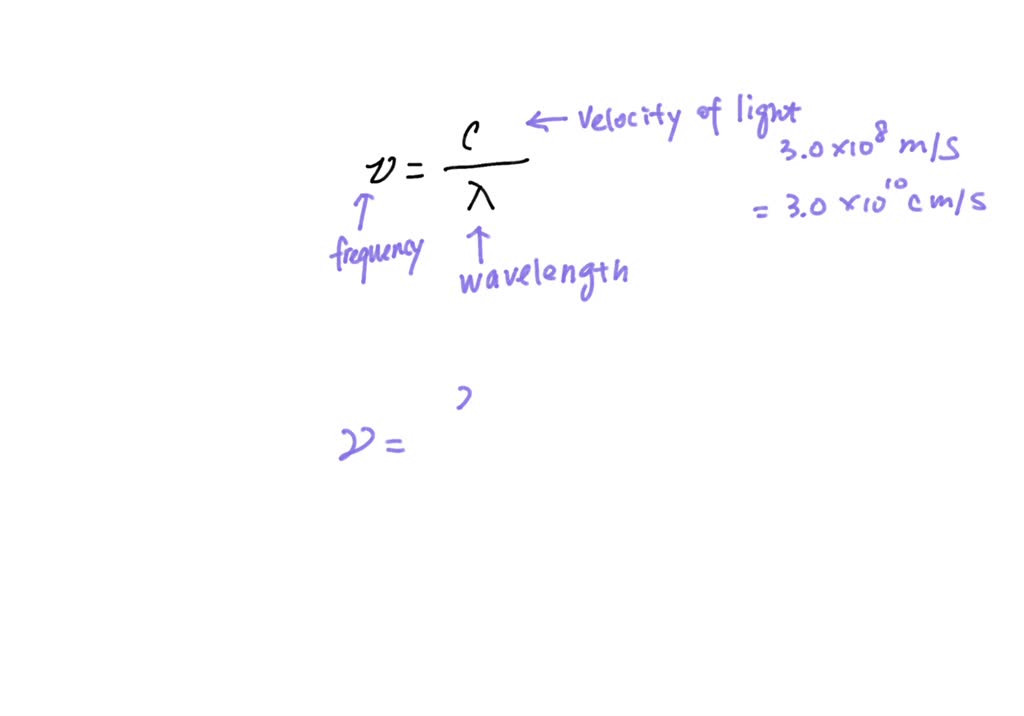 ν = c/λ ← velocity of light
3.0 × 10⁸ m/s
= 3.0 × 10¹⁰ cm/s
↑ frequency
↑ wavelength
ν =